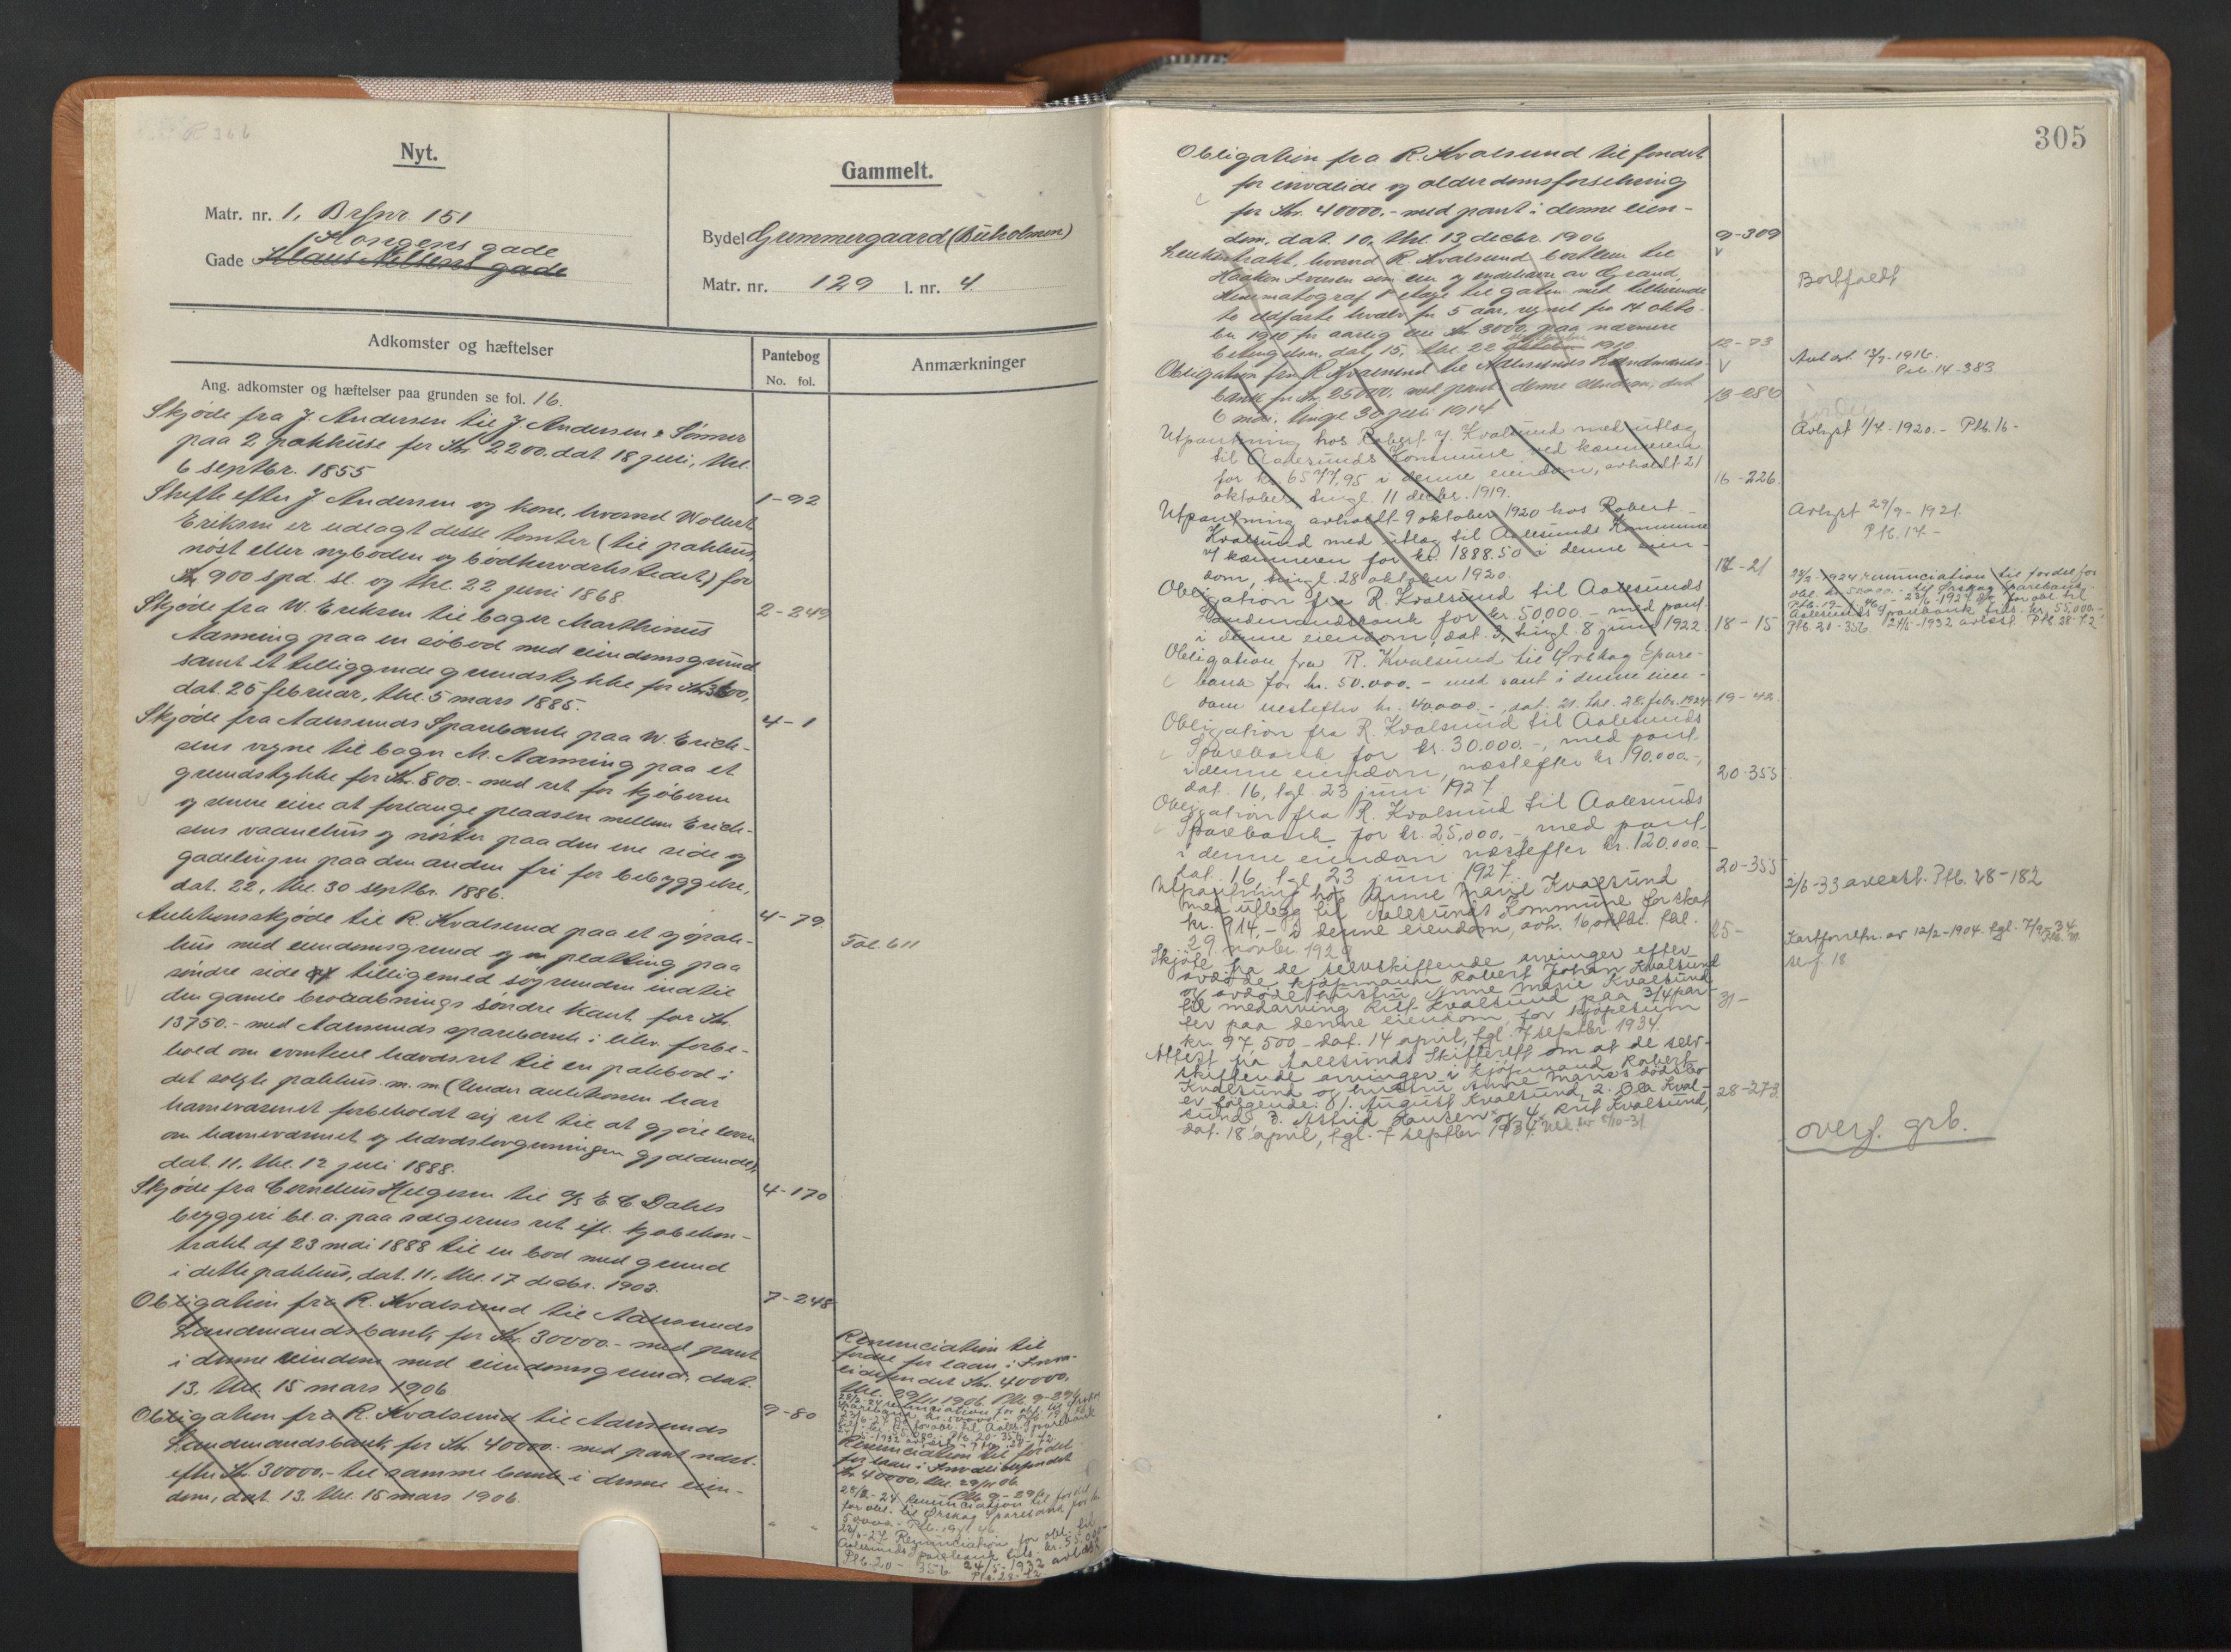 R 366
Nyt.
Matr. nr. 1, Brfnr. 151
Kongens gade
Gade Klaus Nilsens gade
Gammelt.
Bydel Grimmergaard (Buholmen)
Matr. nr. 129 l. nr. 4
Adkomster og hæftelser
Pantebog
No. fol.
Anmærkninger
Ang. adkomster og hæftelser paa grunden se fol. 16.
Skjøde fra J. Andersen til J. Andersen & Sønner
paa 2 pakhuse for Kr. 2200. dat. 18 juli, thl.
6 septbr. 1855
1-92
Skifte efter J. Andersen og kone, hvorved Wollert
Eriksen er udlagt dette tomter (til pakhus,
nøst eller nyboden og bødkerværkstedet) for
900 spd. sl. og thl. 22 juni 1868.
2-249
Skjøde fra W. Eriksen til bager Marthinus
Aanning paa en søbod med eiendomsgrund
samt et tilliggende grundstykke for Kr.
dat. 25 februar, thl. 5 mars 1885.
4-1
Skjøde fra Aalesunds Sparebank paa W. Erich-
sens vegne til bager M. Aanning paa et
grundstykke for Kr. 800.- med ret for kjøberen
og senere eiere at forlange pladsen mellem Erich-
sens vaanehus og nøster paa den ene side og
gadelinjen paa den anden fri for bebyggelse,
dat. 22, thl. 30 septbr. 1886.
4-79
Auktionsskjøde til R. Kvalsund paa et sjøpak-
hus med eiendomsgrund og en platting paa
søndre side af tilligemed søgrunden indtil
den gamle broaabnings søndre kant for Kr.
13750.- med Aalesunds sparebank i tilv. forbe-
hold om eventuel hævdsret til en pakbod i
det solgte pakhus. m. m (Under auktionen har
havnevæsenet forbeholdt sig ret til at gjøre loven
om havnevæsenet og hævdslovgivningen gjældende),
dat. 11, thl. 12 juli 1888.
Fol. 611
4-170
Skjøde fra Cornelius Helgesen til A/S E C Dahls
bryggeri bl. a. paa sælgerens ret ifl. kjøbekon-
trakt af 23 mai 1888 til en bod med grund
i dette pakhus, dat. 11, thl. 17 decbr. 1903.
7-248
Obligation fra R. Kvalsund til Aalesunds
Landmandsbank for Kr. 30000.- med pant
i denne eiendom med eiendomsgrund, dat.
13, thl. 15 mars 1906
9-80
Renunciation til
fordel for laan i Inva-
lidefondet Kr. 40000,
thl. 29/11 1906. Ptb. 9-29
Obligation fra R. Kvalsund til Aalesunds
Landmandsbank for Kr. 40000.- med pant næst-
efter Kr. 30000.- til samme bank i denne eien-
dom, dat. 13. thl. 15 mars 1906.
" "
Renunciation til fordel
for laan i Invalidefondet
Kr. 40000. thl. 29/11 06.
28/2-24 Renunciation til fordel
for obl. til Ørskog Sparebank for kr.
50000.- Ptb. 19 - 46
Renunciation for obl. til
Aalesunds Sparebank tils. kr. 55.000
Ptb. 20 - 356 24/5-1932 avlæst
Ptb. 28-72
305
Obligation fra R. Kvalsund til fondet
for invalide og alderdomsforsikring
for Kr. 40000.- med pant i denne eien-
dom, dat. 10, thl. 13 decbr. 1906
9-309
Leiekontrakt, hvorved R. Kvalsund bortleier til
Haakon Iversen som eier og indehaver av Grand
Kinematograf 1 etage til gaten med tilhørende
to ildfaste hvælv for 5 aar, regnet fra 14 okto-
ber 1910 for aarlig leie Kr. 3000, paa nærmere
betingelser, dat. 15, thl. 22 oktober 1910
12-73
Bortfaldt
Obligation fra R. Kvalsund til Aalesunds Landmands-
bank for Kr. 25000, med pant i denne eiendom, dat.
6 mai, tingl. 30 juli 1914
13-280
Avl. dat. 13/7-1916.
Ptb. 14-383
Utpantning hos Robert J. Kvalsund med utlæg
til Aalesunds Kommune ved kæmneren
for kr. 6577,95 i denne eiendom, avholdt 21
oktober, tingl. 11 decbr. 1919.
16-226.
Avlyst 1/7-1920.- Ptb. 16-
Utpantning avholdt 9 oktober 1920 hos Robert
Kvalsund med utlæg til Aalesunds Kommune
v/ kæmneren for kr. 1888.50 i denne eien-
dom, tingl. 28 oktober 1920.
17-21
Avlyst 29/9-1921.
Ptb. 17-
Obligation fra R. Kvalsund til Aalesunds
Landmandsbank for kr. 50,000 - med pant
i denne eiendom, dat. 3, tingl. 8 juni 1922.
18-15
28/2-1924 renunciation til fordel for
obl. kr. 50000.- til Ørskog Sparebank
Ptb. 19 - 46. - 23/6-1927 do for obl. til
Aalesunds Sparebank tils. kr. 55,000-
Ptb. 20-356. 24/5-1932 avlæst. Ptb. 28-72
Obligation fra R. Kvalsund til Ørskog Spare-
bank for kr. 50.000.- med pant i denne eien-
dom nestefter kr. 40,000.-, dat. 21. thl. 28. febr. 1924
19-42.
Obligation fra R. Kvalsund til Aalesunds
Sparebank for kr. 30.000.-, med pant
i denne eiendom, næstefter kr. 90.000.-,
dat. 16, tgl. 23 juni 1927
20-355
Obligation fra R. Kvalsund til Aalesunds
Sparebank for kr. 25,000.-, med pant
i denne eiendom næstefter kr. 120.000.-
dat. 16, tgl. 23 juni 1927.
20-355
Utpantning hos Anne Marie Kvalsund
med utlegg til Aalesunds Kommune for skat
kr. 914,- i denne eiendom, avh. 16 oktbr. tgl.
29 novbr. 1929
25-
2/6-33 avlæst. Ptb. 28-182
Skjøte fra de selvskiftende arvinger efter
avdøde kjøpmann Robert Johan Kvalsund
og avdøde hustru Anne Marie Kvalsund
til medarving Rolf Kvalsund paa 3/4 par-
ter paa denne eiendom, for kjøpesum
kr. 97 500 - dat. 14 april, tgl. 7 septbr 1934.
31-
Kartforretn. av 12/2-1904. tgl. 7/9-34.
se f. 18
Attest fra Aalesunds Skifterett om at de selv-
skiftende arvinger i kjøpmand Robert
Kvalsund og hustru Anne Maries dødsbo
er følgende: 1. August Kvalsund, 2. Ola Kval-
sund, 3. Astrid Hansen og 4. Rolf Kvalsund,
dat. 18 april, tgl. 7 septbr. 1934.
28-273
overf. grb.